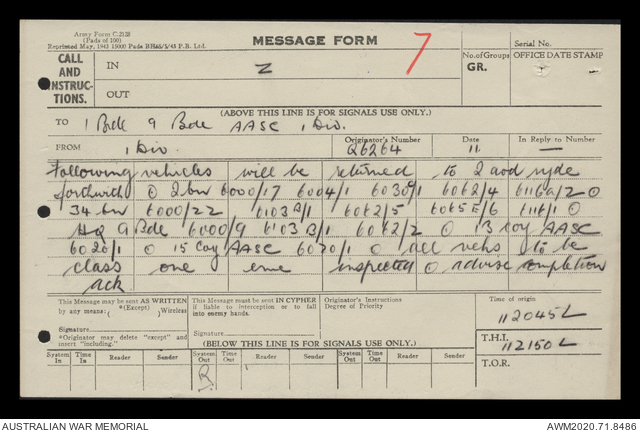 Army Form C.2128
(Pads of 100)
MESSAGE FORM
7
Serial No.
Reprinted May, 1943 15000 Pads P.B. Ltd.
No. of Groups
GR.
OFFICE DATE STAMP
CALL
AND
INSTRUC-
TIONS.
IN
Z
OUT
(ABOVE THIS LINE IS FOR SIGNALS USE ONLY.)
TO 1 Bde 9 Bde AASC 1 Div.
FROM 1 Div
Originator's Number Q6264
Date 11
In Reply to —
Following vehicles will be returned to 2 aod ryde
forthwith O 2 bn 6000/17 6004/1 6062/4 6116A/2 O
34 bn 6000/22 6103B/1 6062/5 6065E/6 6116/1 O
HQ 9 Bde 6000/9 6103B/1 6062/2 O 13 coy AASC
6020/1 O 15 coy AASC 6020/1 O all vehs to be
class one eme inspected O advise completion
ack.
This Message may be sent AS WRITTEN
by any means: ( *(Except) ) Wireless
Signature
*Originator may delete "except" and
insert "including."
This Message must be sent IN CYPHER
if liable to interception or to fall
into enemy hands.
Signature
Originator's Instructions
Degree of Priority
Time of origin
112045L
(BELOW THIS LINE IS FOR SIGNALS USE ONLY.)
T.H.I.
112150L
System In
Time In
Reader
Sender
System Out
Time Out
Reader
Sender
System Out
Time Out
Reader
Sender
T.O.R.
R
AUSTRALIAN WAR MEMORIAL
AWM2020.71.8486